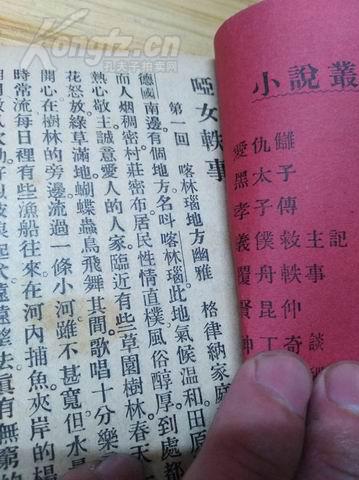 Kongfz.cn
孔夫子拍卖网
小說叢
愛仇讎
黑太子
孝子傳
義僕救主記
覆舟軼事
賢昆仲
神工奇談
啞女軼事
第一回 喀林瑙地方幽雅 格律納家庭
德國南邊有個地方名呌喀林瑙此地氣候温和田原
而人烟稠密村莊密布居民性情直樸風俗醇厚到處都
熱心敬主誠意愛人的人家臨近有些草園樹林春天
花怒放綠草滿地蝴蝶蟲鳥飛舞其間歌唱十分樂
開心在樹林的旁邊流過一條小河雖不甚寬但水
時常流每日裡有些漁船往來在河內捕魚夾岸的楊
遠遠望去眞有無窮的